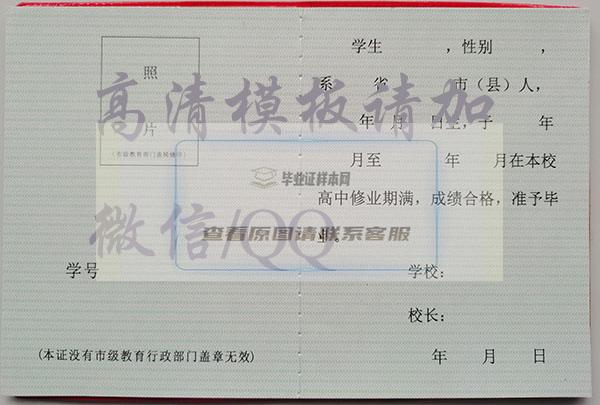 照
片
(市级教育部门盖展情印)
学号
(本证没有市级教育行政部门盖章无效)
学生 ，性别 ，
系 省 市（县）人，
年 月 日生，于 年
月至 年 月在本校
高中修业期满，成绩合格，准予毕
业。
学校：
校长：
年 月 日
高清模板请加
微信/QQ
毕业证样本网
查看原图请联系客服